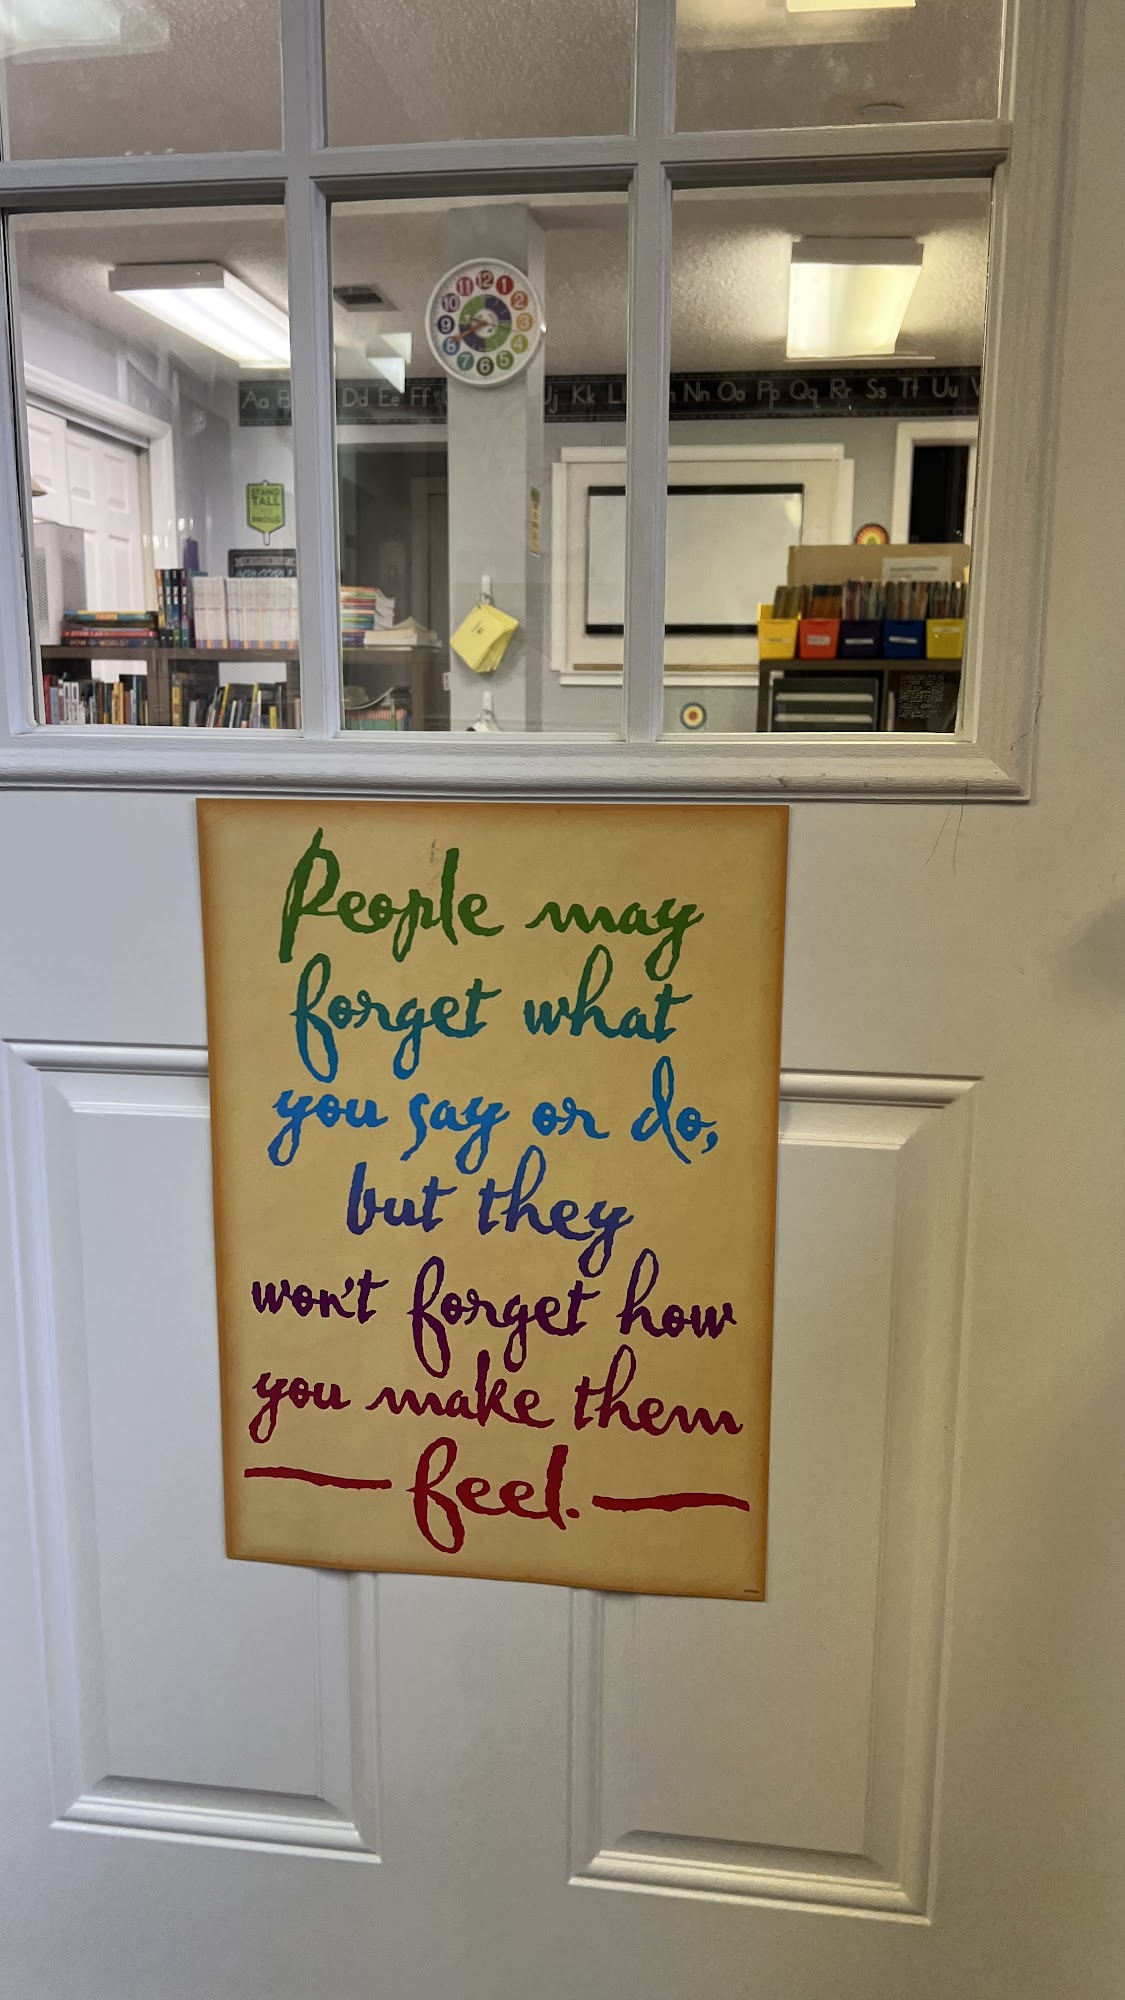 11 12 1
10 2
9 3
8 4
7 6 5
Aa B Dd Ee Ff Jj Kk L Nn Oo Pp Qq Rr Ss Tt Uu V
STAND
TALL
PROUD
People may
forget what
you say or do,
but they
won't forget how
you make them
feel.